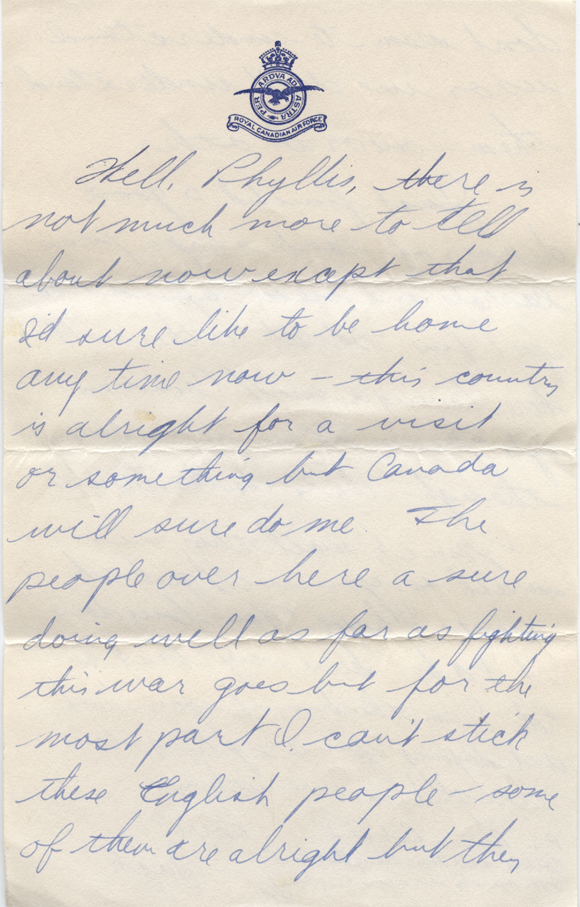 PER ARDVA AD ASTRA
ROYAL CANADIAN AIR FORCE
Well, Phyllis, there is
not much more to tell
about now except that
I'd sure like to be home
any time now – this country
is alright for a visit
or something but Canada
will sure do me. The
people over here a sure
doing well as far as fighting
this war goes but for the
most part I can't stick
these English people – some
of them are alright but they